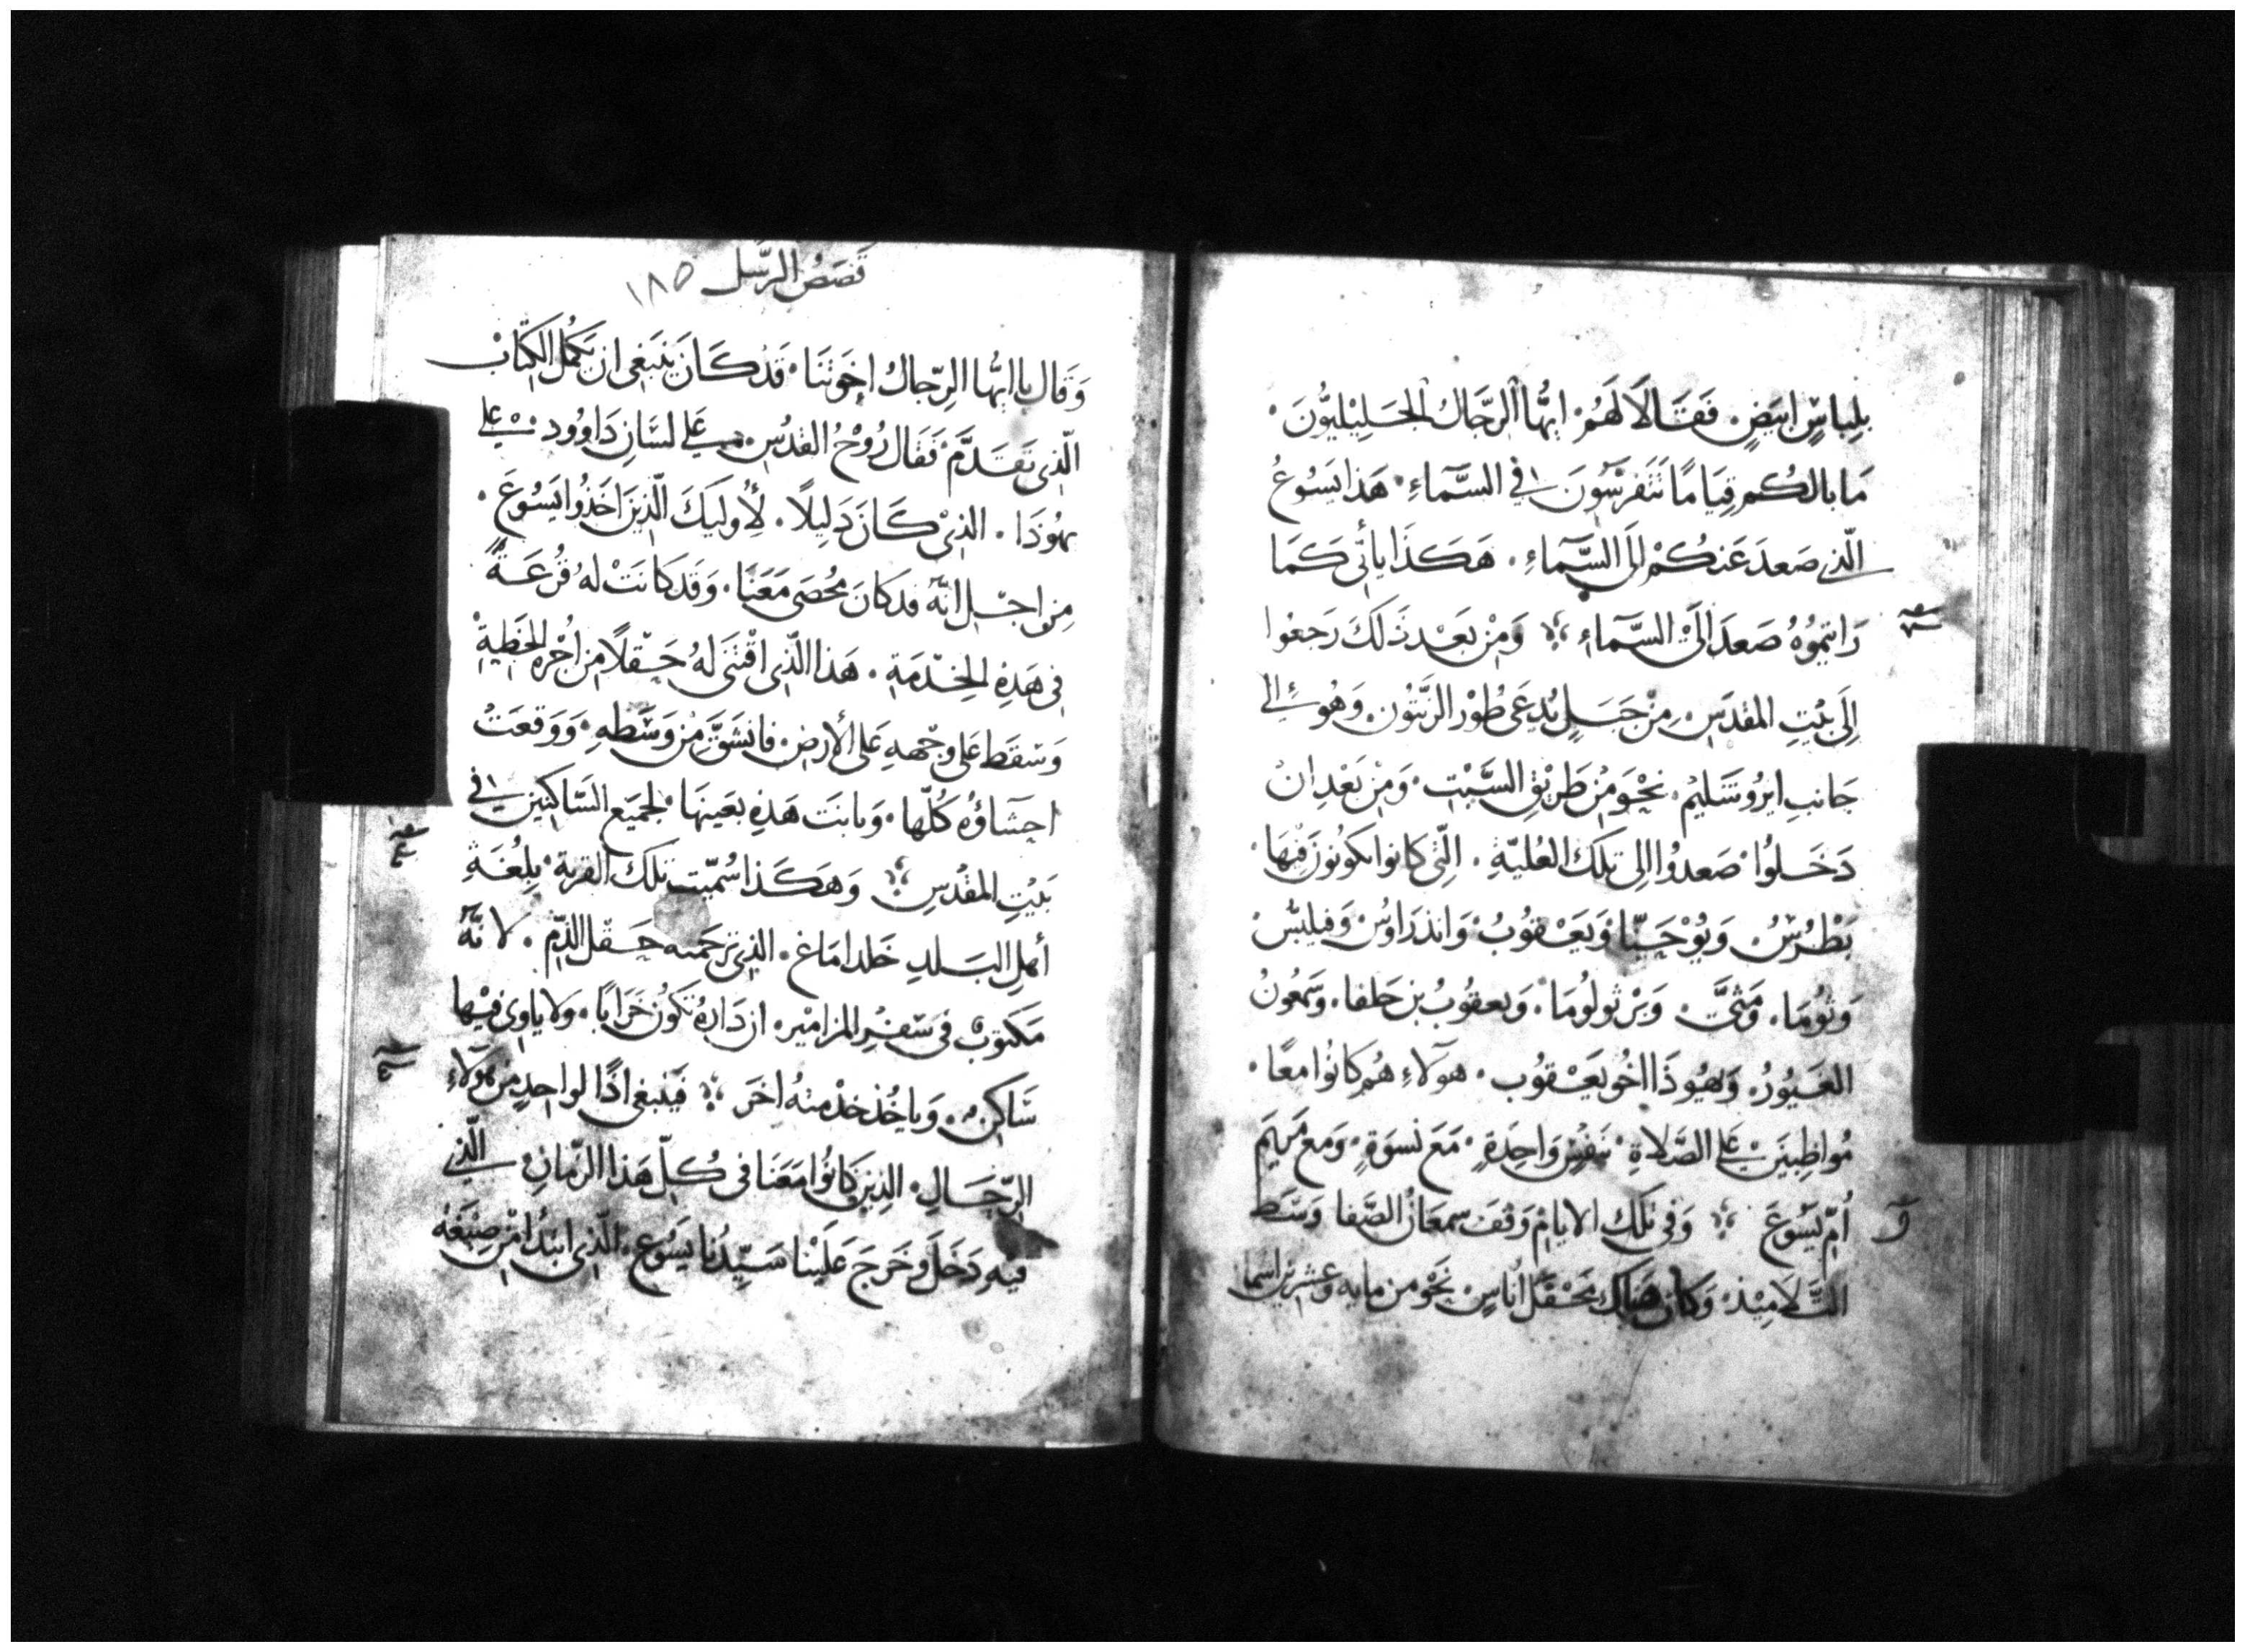 بلِباسٍ ابيَضٍ. فَقَالَا لَهُم. ايُّها الرّجَالُ الجَلِيْليُّونَ.
مَا بالكُم قِيَامًا تَتَفرسُونَ في السَّماءِ. هَذا يَسُوعُ
الّذي صَعدَ عَنكُمْ الى السَّماءِ. هَكَذَا ياتى كَمَا
رَايتمُوُهُ صَعدَ الىَ السَّماءِ وَمِنْ بَعْد ذَلكَ رَجعُوا
إلَى بيْتِ المقدَسِ. مِنْ جَبَلٍ يُدعَى طُوْر الزَّيتُونِ. وَهُو الى
جَانبِ ايرُوشَليمُ. نحْوَ مِنْ طَريْقِ السَّبْتِ. وَمِنْ بَعْدِ انْ
دَخَلوُا صَعدُوا الى تلكَ العُليّةِ. الّتي كانوا يكونونَ فيْهَا.
بَطْرُسُ وَيُوْحَنّا وَيَعْقوُبُ. وَاندَرَاوُسُ وَفيلبّسُ
وَتُوُمَا. وَمَتَّى وَبَرْثولوُمَا. وَيعقوُبُ بن حَلفا. وَسَمعُونُ
الغَيُورُ. وَيَهُوذَا اخُو يَعْقوُب. هَولاءِ هُم كَانُوا مَعًا.
مُواظِبيَن عَلى الصَّلاةِ. بنَفْسٍ وَاحِدَةٍ. مَعَ نسوَةٍ. وَمَع مَريَم
اُمِّ يَسُوعَ وَفى تلكَ الايامِ وَقفَ سمعَانُ الصَّفا وَسَط
التَّلامِيْذ. وَكانَ هنَاكَ مَحْفَل اُناسٍ. نَحْو من مايه وعشرين اسما
قَصَصُ الرّسُل ١٨٥
وَقال يا ايهُّا الرّجالُ اخوَتنَا. قَد كَانَ يَنبَغي ان يَكمُل الكتَابْ
الّذي تَقَدَّمَ. فَقَال رُوْحُ القدُسِ. على لسَانِ دَاوُود. على
يهُوُذَا. الذى كَانَ دَلِيلاً. لأُولَيكَ الّذينَ اخَذُوا يَسُوعَ.
مِن اجْلِ انّهُ قد كَانَ مُحْصَى مَعَنَا. وَقَد كَانَتْ لهُ قُرعَةٌ
فى هَذِه الخِدْمَةِ. هَذا الّذي اقتَنَى لهُ حَقلًا مِن اُجْرَه الخَطيةِ
وَسْقَط عَلى وجْههِ عَلى الأرضِ. فانشَقَّ مِنْ وَسْطِهِ. وَوَقعَتْ
احشَاؤُهُ كُلّها. وَبانتَ هَذِهِ بعَينهَا لجميَع السَّاكنيَن في
بَيْتِ المقدْسِ وَهَكَذا سُمّيَت تلكَ القرية. بلُغَةِ
أهلِ البَلدِ حَلد امَاغ. الذى تَرجَمته حَقل الدّمِ. لانّهُ
مَكتوبٌ فى سفْرِ المزامْير. ان دَارَهُ تَكوُن خَرَابًا. وَلا ياوى فيْها
سَاكنٌ. وَياخُذ خدْمتهُ اخَر فَينبغى اذًا لواحِدٍ من هَولاءِ
الرّجَالِ. الذين كَانُوا مَعَنَا فى كُلّ هَذا الزّمانِ الّذي
فيهِ دَخَلَ وَخَرجَ عَلَيْنا سَيّدُنا يَسُوع. الّذى ابتدَا من صبْغَة